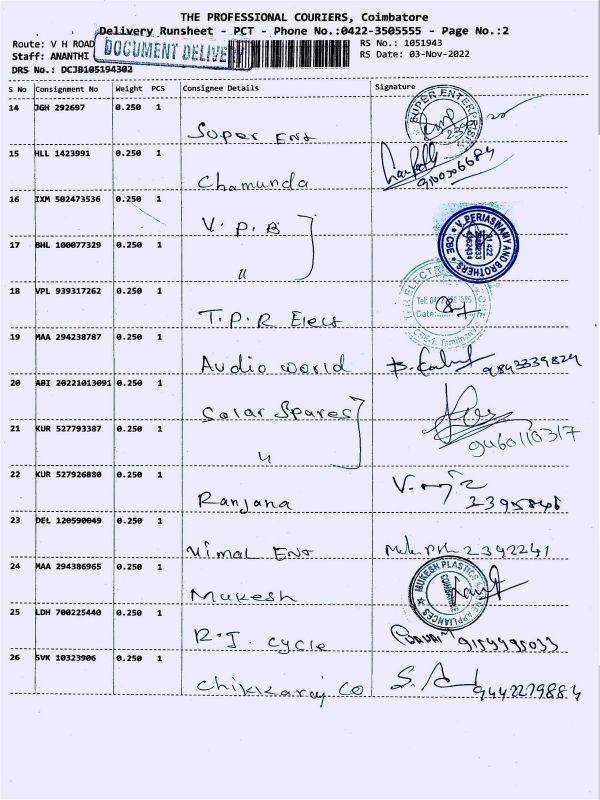 THE PROFESSIONAL COURIERS, Coimbatore
Delivery Runsheet - PCT - Phone No.:0422-3505555 - Page No.:2
Route: V H ROAD
DOCUMENT DELIVE
RS No.: 1051943
Staff: ANANTHI
RS Date: 03-Nov-2022
DRS No.: DCJB105194302
S No Consignment No Weight PCS Consignee Details Signature
14 JGH 292697 0.250 1
Super Ent
SUPER ENTERPRISES
15 HLL 1423991 0.250 1
Chamunda
16 IXM 502473536 0.250 1
V. P. B
V.PERIASWAMY AND BROTHERS CBE
17 BHL 100077329 0.250 1
"
18 VPL 939317262 0.250 1
T.P.R Elect
19 MAA 294238787 0.250 1
Audio world
9843339824
20 ABI 20221013091 0.250 1
Solar Spares
21 KUR 527793387 0.250 1
"
22 KUR 527926880 0.250 1
Ranjana
23 DEL 120590049 0.250 1
Vimal Ent
2392241
24 MAA 294386965 0.250 1
Mukesh
MUKESH PLASTICS APPLIANCES
25 LDH 700225440 0.250 1
R.J. Cycle
26 SVK 10323906 0.250 1
Chikkaraj CO
9442279884